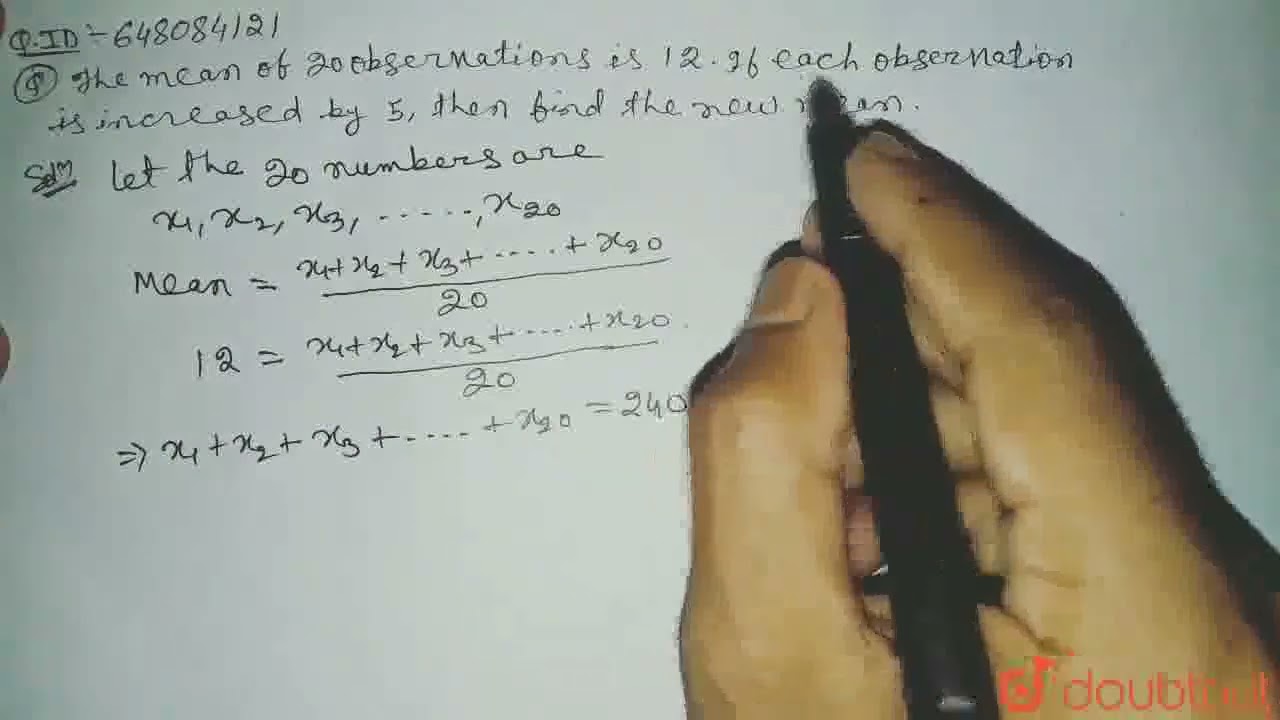 Q.ID :- 648084121
Q The mean of 20 observations is 12. If each observation
is increased by 5, then find the new mean.
Solⁿ Let the 20 numbers are
x₁, x₂, x₃, ....., x₂₀
Mean = x₁+x₂+x₃+.....+x₂₀ / 20
12 = x₁+x₂+x₃+.....+x₂₀ / 20
⇒ x₁+x₂+x₃+.....+x₂₀ = 240
doubtnut